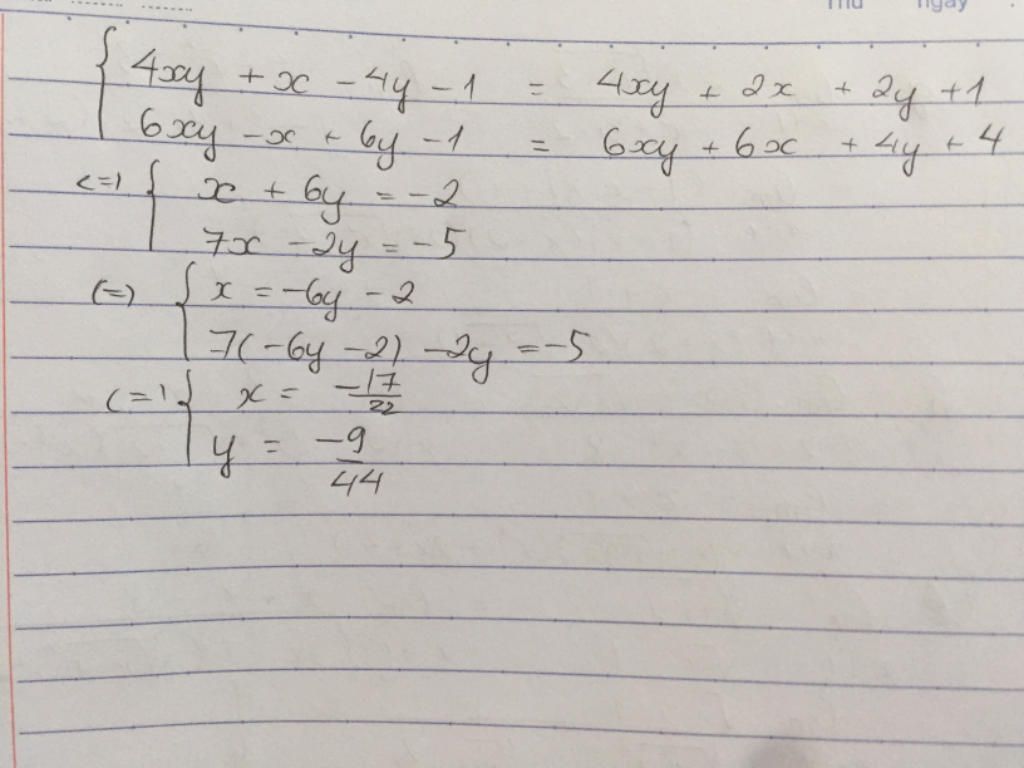 Thứ ngày
4xy + x - 4y - 1 = 4xy + 2x + 2y + 1
6xy - x + 6y - 1 = 6xy + 6x + 4y + 4
<=> x + 6y = -2
7x - 2y = -5
(=) x = -6y - 2
7(-6y - 2) - 2y = -5
(=) x = -17/22
y = -9/44